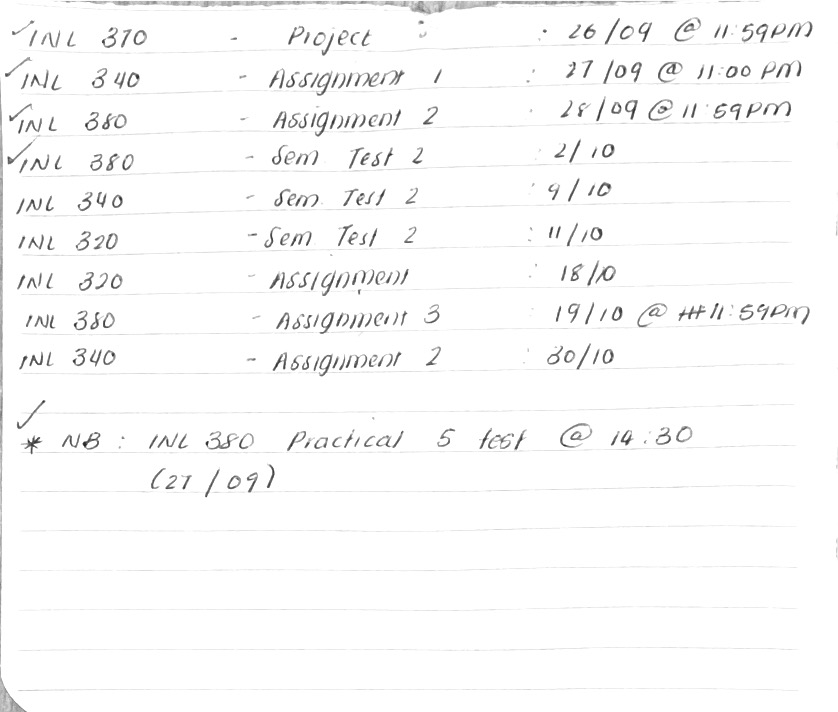 ✓ INL 370 - Project : : 26/09 @ 11:59PM
✓ INL 340 - Assignment 1 : 27/09 @ 11:00 PM
✓ INL 380 - Assignment 2 . 28/09 @ 11:59PM
✓ INL 380 - Sem Test 2 : 2/10
INL 340 - Sem Test 2 : 9/10
INL 320 - Sem Test 2 : 11/10
INL 320 - Assignment : 18/10
INL 380 - Assignment 3 : 19/10 @ 11:59PM
INL 340 - Assignment 2 : 30/10
✓
* NB : INL 380 Practical 5 test @ 14:30
(27/09)